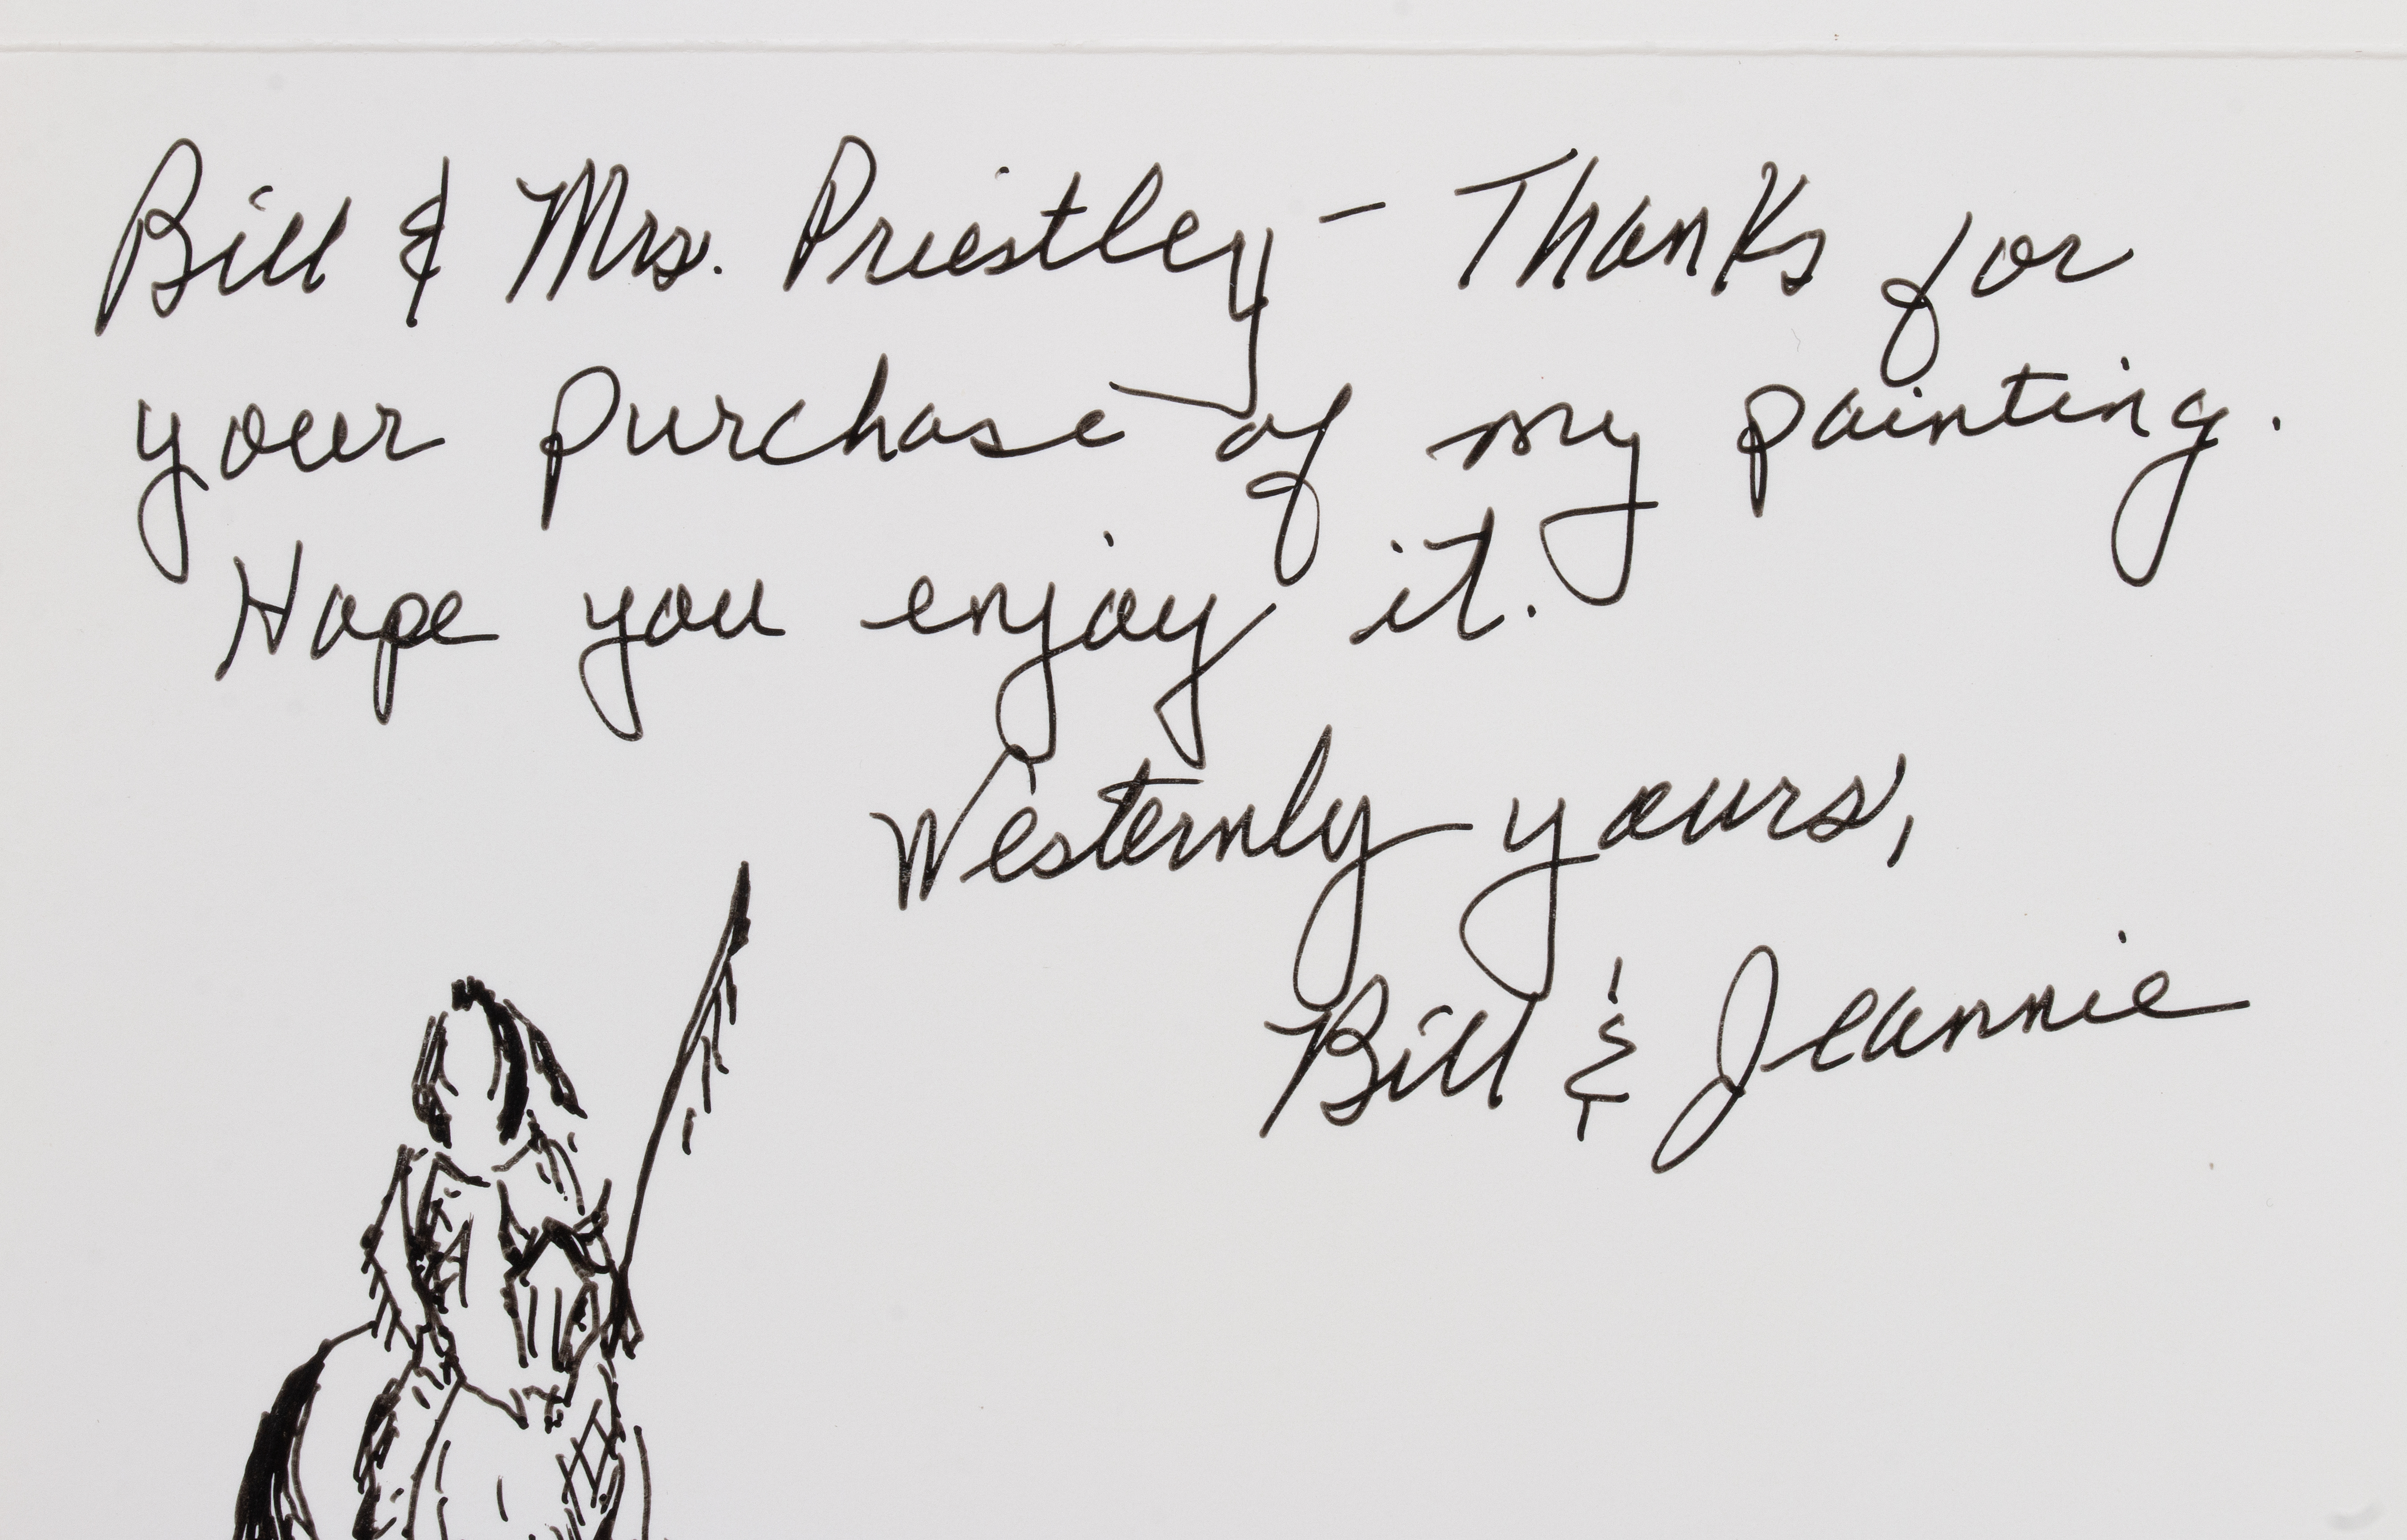 Bill & Mrs. Priestley – Thanks for
your purchase of my painting.
Hope you enjoy it.
Westernly yours,
Bill & Jeannie